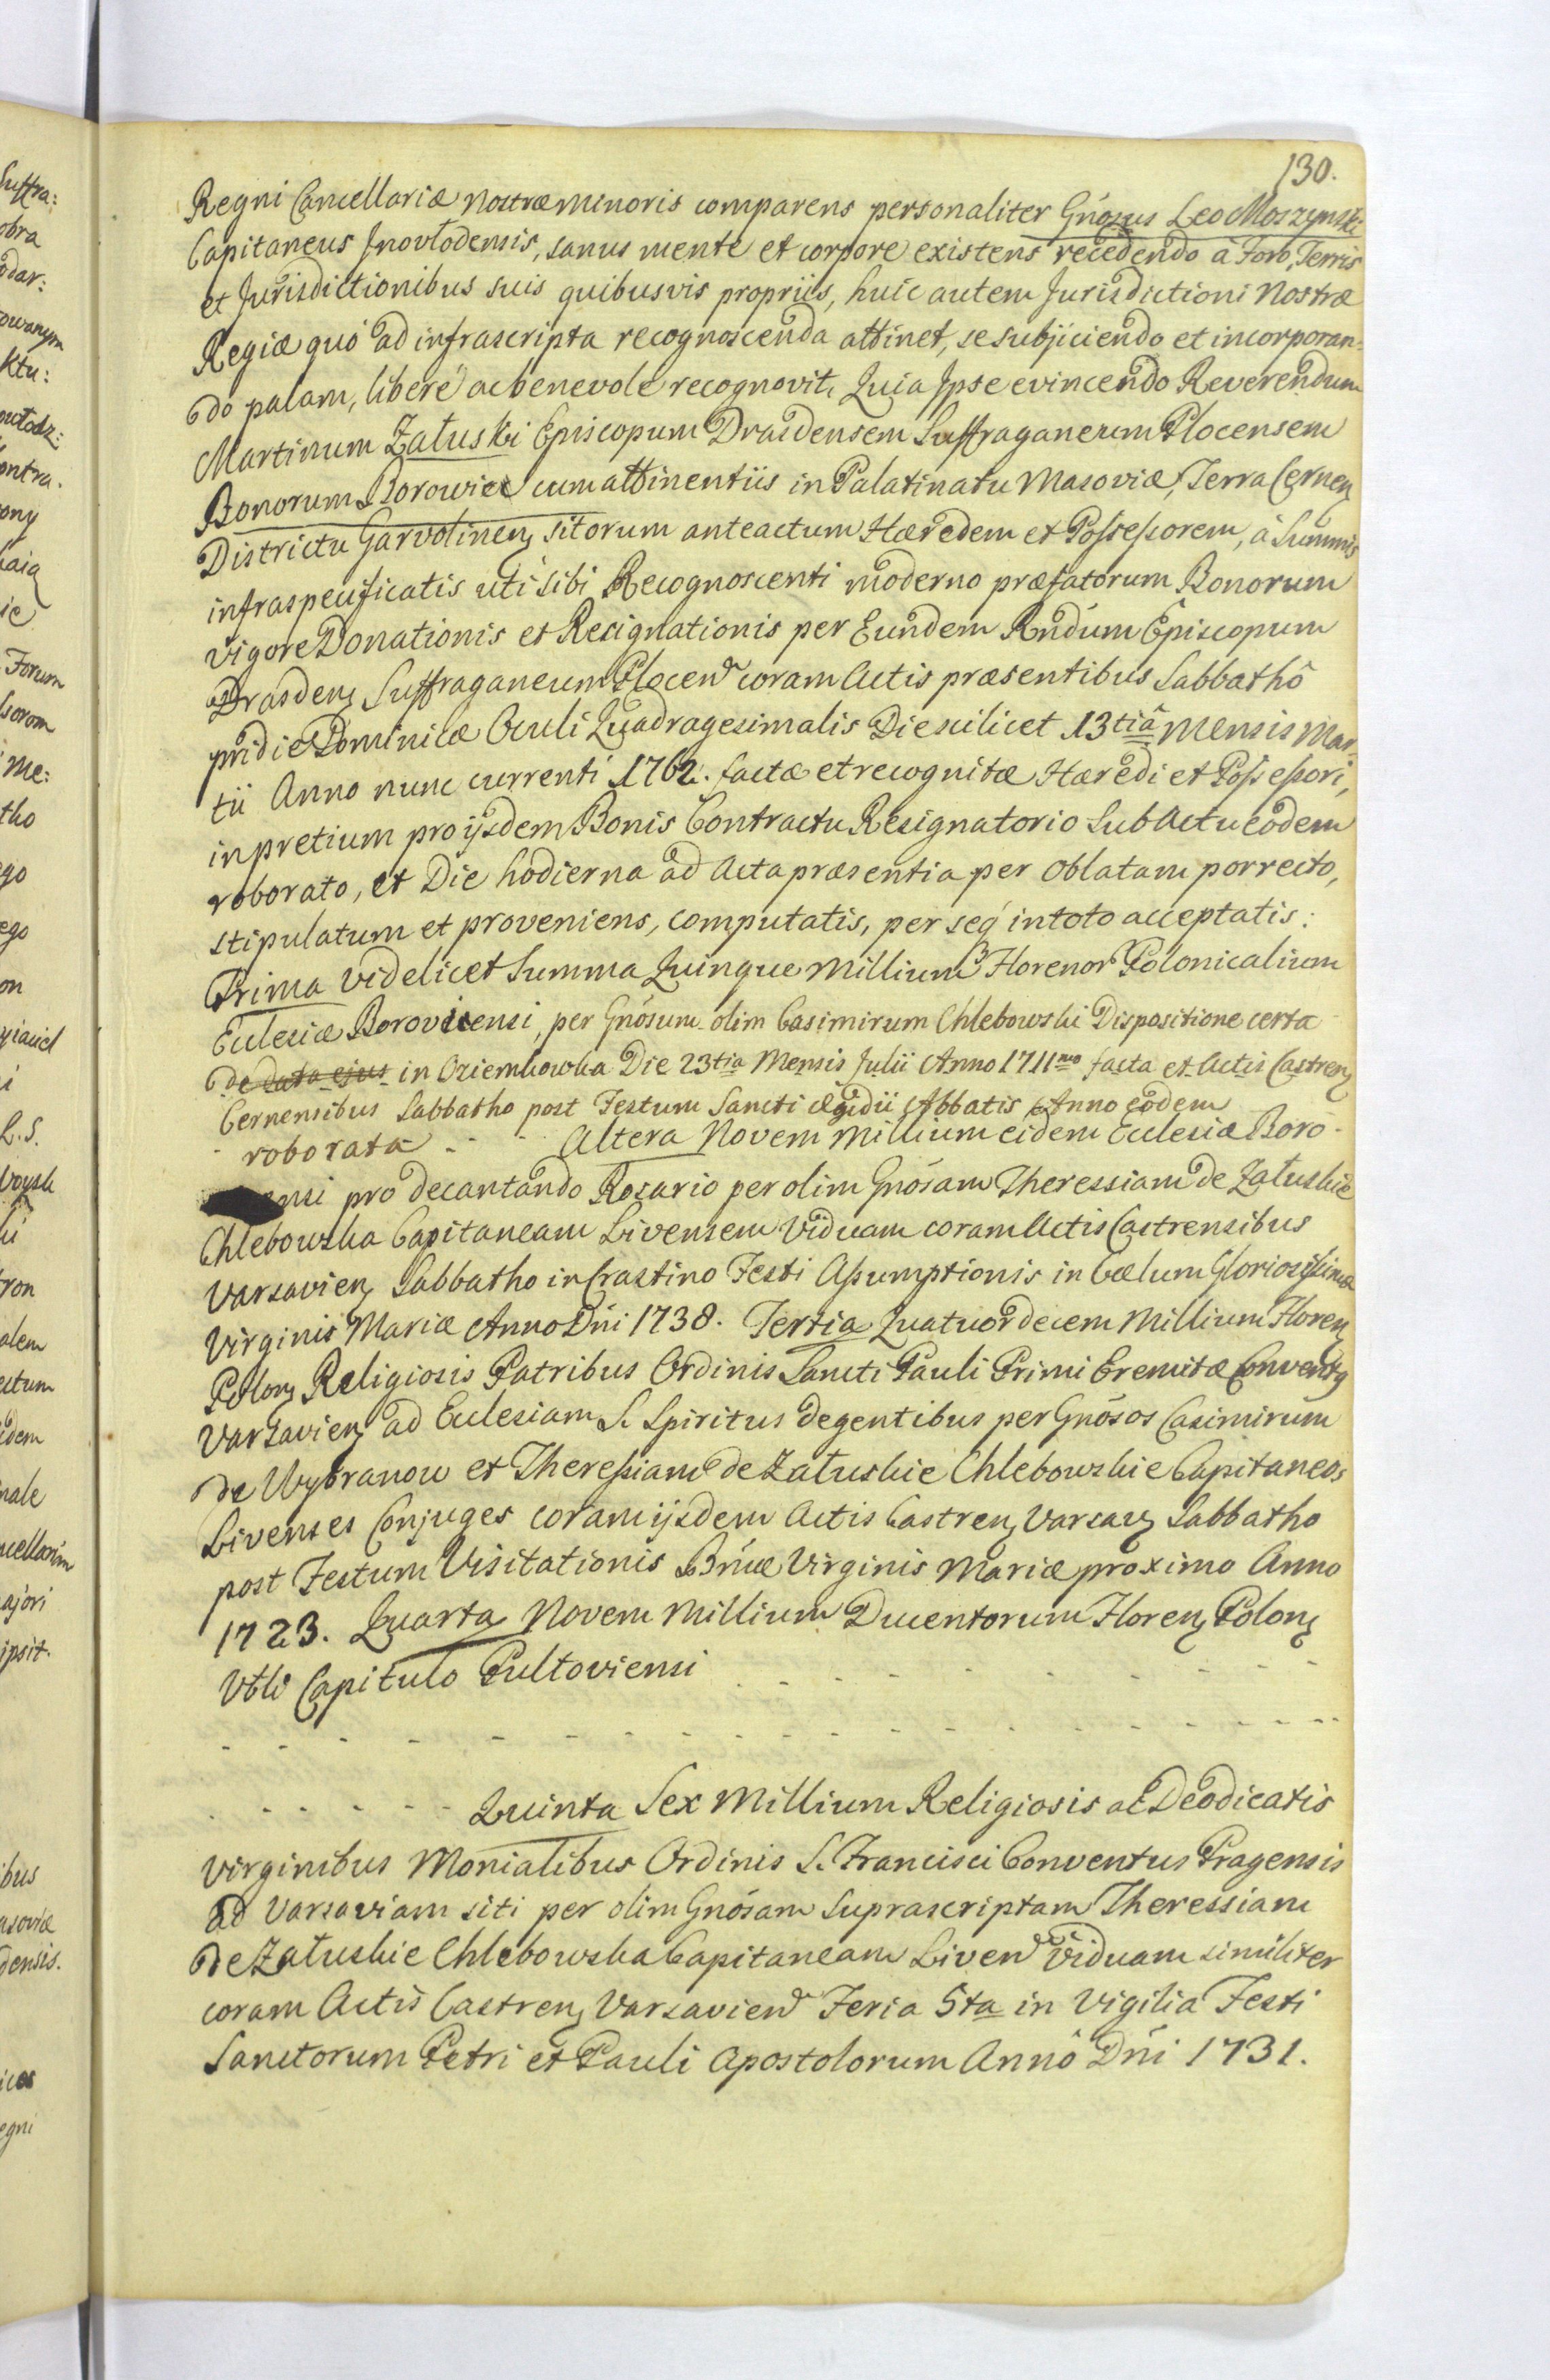 130.
Regni Cancellariæ Nostræ Minoris comparens personaliter Gnósus Leo Moszynski
Capitaneus Jnovlodensis, sanus mente et corpore existens recedendo à Foro, Terris
et Jurisdictionibus suis quibusvis propriis, huic autem Jurisdictioni Nostræ
Regiæ quó ad infrascripta recognoscenda attinet, se subjiciendo et incorporan=
do palam, liberé ac benevolé recognovit, Quia Jpse evincendo Reverendum
Martinum Załuski Episcopum Drasdensem Suffraganeum Plocensem
Bonorum Borowie cum attinentiis in Palatinatu Masoviæ, Terra Cernen
Districtu Garvolinen sitorum anteactum Hæredem et Possessorem, á Summis
infraspecificatis uti sibi Recognoscenti moderno præfatorum Bonorum
vigore Donationis et Resignationis per Eundem Rndum Episcopum
Drasden Suffraganeum Plocen coram Actis præsentibus Sabbathô
pridie Dominicæ Oculi Quadragesimalis Die scilicet 13tiâ Mensis Mar=
tii Anno nunc currenti 1762. factæ et recognitæ Hæredi et Possessori,
in pretium pro ijsdem Bonis Contractu Resignatorio Sub Actu eodem
roborato, et Die hodierna ad Acta præsentia per Oblatam porrecto,
stipulatum et proveniens, computatis, per seq in toto acceptatis:
Prima videlicet Summa Quinque Millium Florenor Polonicalium
Eclesiæ Boroviensi, per Gnósum olim Casimirum Chlebowski Dispositione certa
de data ejus in Oziemkowka Die 23tia Mensis Julii Anno 1711mo facta et Actis Castren
Cernensibus Sabbatho post Festum Sancti Ægidii Abbatis Anno eodem
roborata - - - Altera Novem Millium eidem Eclesiæ Boro-
ensi pro decantando Rosario per olim Gnósam Theressiam de Załuskie
Chlebowska Capitaneam Livensem Viduam coram Actis Castrensibus
Varsavien Sabbatho in Crastino Festi Assumptionis in Cœlum Gloriosissimæ
Virginis Mariæ Anno Dni 1738. Tertia Quatuordecem Millium Floren
Polon Religiosis Patribus Ordinis Sancti Pauli Primi Eremitæ Convent9
Varsavien ad Eclesiam S. Spiritus degentibus per Gnósos Casimirum
de Wybranow et Theressiam de Załuskie Chlebowskie Capitaneos
Livenses Conjuges coram ijsdem Actis Castren Varsav Sabbatho
post Festum Visitationis Bnæ Virginis Mariæ proximo Anno
1723. Quarta Novem Millium Ducentorum Floren Polon
Vbli Capitulo Pultoviensi - - - - - - - -
- - - - - - - - - - - - - - - - - - - -
- - - - - Quinta Sex Millium Religiosis ac Deodicatis
Virginibus Monialibus Ordinis S. Francisci Conventus Pragensis
ad Varsaviam siti per olim Gnósam Suprascriptam Theressiam
de Załuskie Chlebowska Capitaneam Liven Viduam similiter
coram Actis Castren Varsavien Feria 5ta in Vigilia Festi
Sanctorum Petri et Pauli Apostolorum Annô Dni 1731.